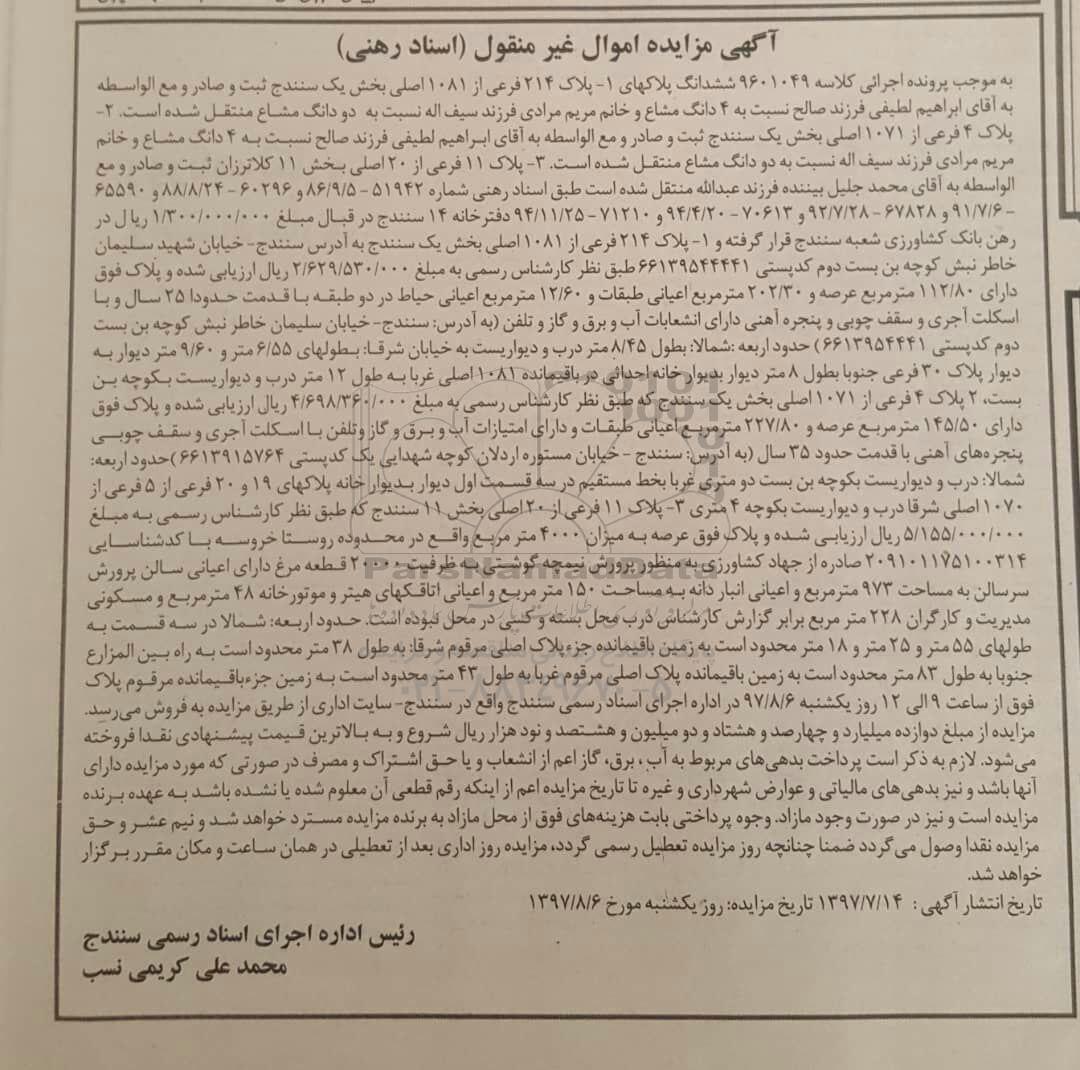 آگهی مزایده اموال غیر منقول (اسناد رهنی)
به موجب پرونده اجرائی کلاسه ۹۶۰۱۰۴۹ ششدانگ پلاکهای ۱- پلاک ۲۱۴ فرعی از ۱۰۸۱ اصلی بخش یک سنندج ثبت و صادر و مع الواسطه
به آقای ابراهیم لطیفی فرزند صالح نسبت به ۴ دانگ مشاع و خانم مریم مرادی فرزند سیف اله نسبت به دو دانگ مشاع منتقل شده است. ۲-
پلاک ۴ فرعی از ۱۰۷۱ اصلی بخش یک سنندج ثبت و صادر و مع الواسطه به آقای ابراهیم لطیفی فرزند صالح نسبت به ۴ دانگ مشاع و خانم
مریم مرادی فرزند سیف اله نسبت به دو دانگ مشاع منتقل شده است. ۳- پلاک ۱۱ فرعی از ۲۰ اصلی بخش ۱۱ کلاترزان ثبت و صادر و مع
الواسطه به آقای محمد جلیل بیننده فرزند عبدالله منتقل شده است طبق اسناد رهنی شماره ۵۱۹۴۲ - ۸۶/۹/۵ و ۶۰۲۹۶ - ۸۸/۸/۲۴ و ۶۵۵۹۰
- ۹۱/۷/۶ و ۶۷۸۲۸ - ۹۲/۷/۲۸ و ۷۰۶۱۳ - ۹۴/۴/۲۰ و ۷۱۲۱۰ - ۹۴/۱۱/۲۵ دفترخانه ۱۴ سنندج در قبال مبلغ ۱/۳۰۰/۰۰۰/۰۰۰ ریال در
رهن بانک کشاورزی شعبه سنندج قرار گرفته و ۱- پلاک ۲۱۴ فرعی از ۱۰۸۱ اصلی بخش یک سنندج به آدرس سنندج- خیابان شهید سلیمان
خاطر نبش کوچه بن بست دوم کدپستی ۶۶۱۳۹۵۴۴۴۴۱ طبق نظر کارشناس رسمی به مبلغ ۲/۶۲۹/۵۳۰/۰۰۰ ریال ارزیابی شده و پلاک فوق
دارای ۱۱۲/۸۰ مترمربع عرصه و ۲۰۲/۳۰ مترمربع اعیانی طبقات و ۱۲/۶۰ مترمربع اعیانی حیاط در دو طبقه با قدمت حدودا ۲۵ سال و با
اسکلت آجری و سقف چوبی و پنجره آهنی دارای انشعابات آب و برق و گاز و تلفن (به آدرس: سنندج- خیابان سلیمان خاطر نبش کوچه بن بست
دوم کدپستی ۶۶۱۳۹۵۴۴۴۱) حدود اربعه :شمالا: بطول ۸/۴۵ متر درب و دیواریست به خیابان شرقا: بطولهای ۶/۵۵ متر و ۹/۶۰ متر دیوار به
دیوار پلاک ۳۰ فرعی جنوبا بطول ۸ متر دیوار بدیوار خانه احداثی در باقیمانده ۱۰۸۱ اصلی غربا به طول ۱۲ متر درب و دیواریست بکوچه بن
بست، ۲ پلاک ۴ فرعی از ۱۰۷۱ اصلی بخش یک سنندج که طبق نظر کارشناس رسمی به مبلغ ۴/۶۹۸/۳۶۰/۰۰۰ ریال ارزیابی شده و پلاک فوق
دارای ۱۴۵/۵۰ مترمربع عرصه و ۲۲۷/۸۰ مترمربع اعیانی طبقات و دارای امتیازات آب و برق و گاز وتلفن با اسکلت آجری و سقف چوبی
پنجره‌های آهنی با قدمت حدود ۳۵ سال (به آدرس: سنندج - خیابان مستوره اردلان کوچه شهدایی یک کدپستی ۶۶۱۳۹۱۵۷۶۴)حدود اربعه:
شمالا: درب و دیواریست بکوچه بن بست دو متری غربا بخط مستقیم در سه قسمت اول دیوار بدیوار خانه پلاکهای ۱۹ و ۲۰ فرعی از ۵ فرعی از
۱۰۷۰ اصلی شرقا درب و دیواریست بکوچه ۴ متری ۳- پلاک ۱۱ فرعی از ۲۰ اصلی بخش ۱۱ سنندج که طبق نظر کارشناس رسمی به مبلغ
۵/۱۵۵/۰۰۰/۰۰۰ ریال ارزیابی شده و پلاک فوق عرصه به میزان ۴۰۰۰ متر مربع واقع در محدوده روستا خروسه با کدشناسایی
۲۰۹۱۰۱۱۷۵۱۰۰۳۱۴ صادره از جهاد کشاورزی به منظور پرورش نیمچه گوشتی به ظرفیت ۲۰۰۰۰ قطعه مرغ دارای اعیانی سالن پرورش
سرسالن به مساحت ۹۷۳ مترمربع و اعیانی انبار دانه به مساحت ۱۵۰ متر مربع و اعیانی اتاقکهای هیتر و موتورخانه ۴۸ مترمربع و مسکونی
مدیریت و کارگران ۲۲۸ متر مربع برابر گزارش کارشناس درب محل بسته و کسی در محل نبوده است. حدود اربعه: شمالا در سه قسمت به
طولهای ۵۵ متر و ۲۵ متر و ۱۸ متر محدود است به زمین باقیمانده جزءپلاک اصلی مرقوم شرقا: به طول ۳۸ متر محدود است به راه بین المزارع
جنوبا به طول ۸۳ متر محدود است به زمین باقیمانده پلاک اصلی مرقوم غربا به طول ۴۳ متر محدود است به زمین جزءباقیمانده مرقوم پلاک
فوق از ساعت ۹ الی ۱۲ روز یکشنبه ۹۷/۸/۶ در اداره اجرای اسناد رسمی سنندج واقع در سنندج- سایت اداری از طریق مزایده به فروش می‌رسد.
مزایده از مبلغ دوازده میلیارد و چهارصد و هشتاد و دو میلیون و هشتصد و نود هزار ریال شروع و به بالاترین قیمت پیشنهادی نقدا فروخته
می‌شود. لازم به ذکر است پرداخت بدهی‌های مربوط به آب ، برق، گاز اعم از انشعاب و یا حق اشتراک و مصرف در صورتی که مورد مزایده دارای
آنها باشد و نیز بدهی‌های مالیاتی و عوارض شهرداری و غیره تا تاریخ مزایده اعم از اینکه رقم قطعی آن معلوم شده یا نشده باشد به عهده برنده
مزایده است و نیز در صورت وجود مازاد. وجوه پرداختی بابت هزینه‌های فوق از محل مازاد به برنده مزایده مسترد خواهد شد و نیم عشر و حق
مزایده نقدا وصول می‌گردد ضمنا چنانچه روز مزایده تعطیل رسمی گردد، مزایده روز اداری بعد از تعطیلی در همان ساعت و مکان مقرر برگزار
خواهد شد.
تاریخ انتشار آگهی : ۱۳۹۷/۷/۱۴ تاریخ مزایده: روز یکشنبه مورخ ۱۳۹۷/۸/۶
رئیس اداره اجرای اسناد رسمی سنندج
محمد علی کریمی نسب
ParsNamadData
۰۲۱-۸۸۳۴۹۶۷۰-۵